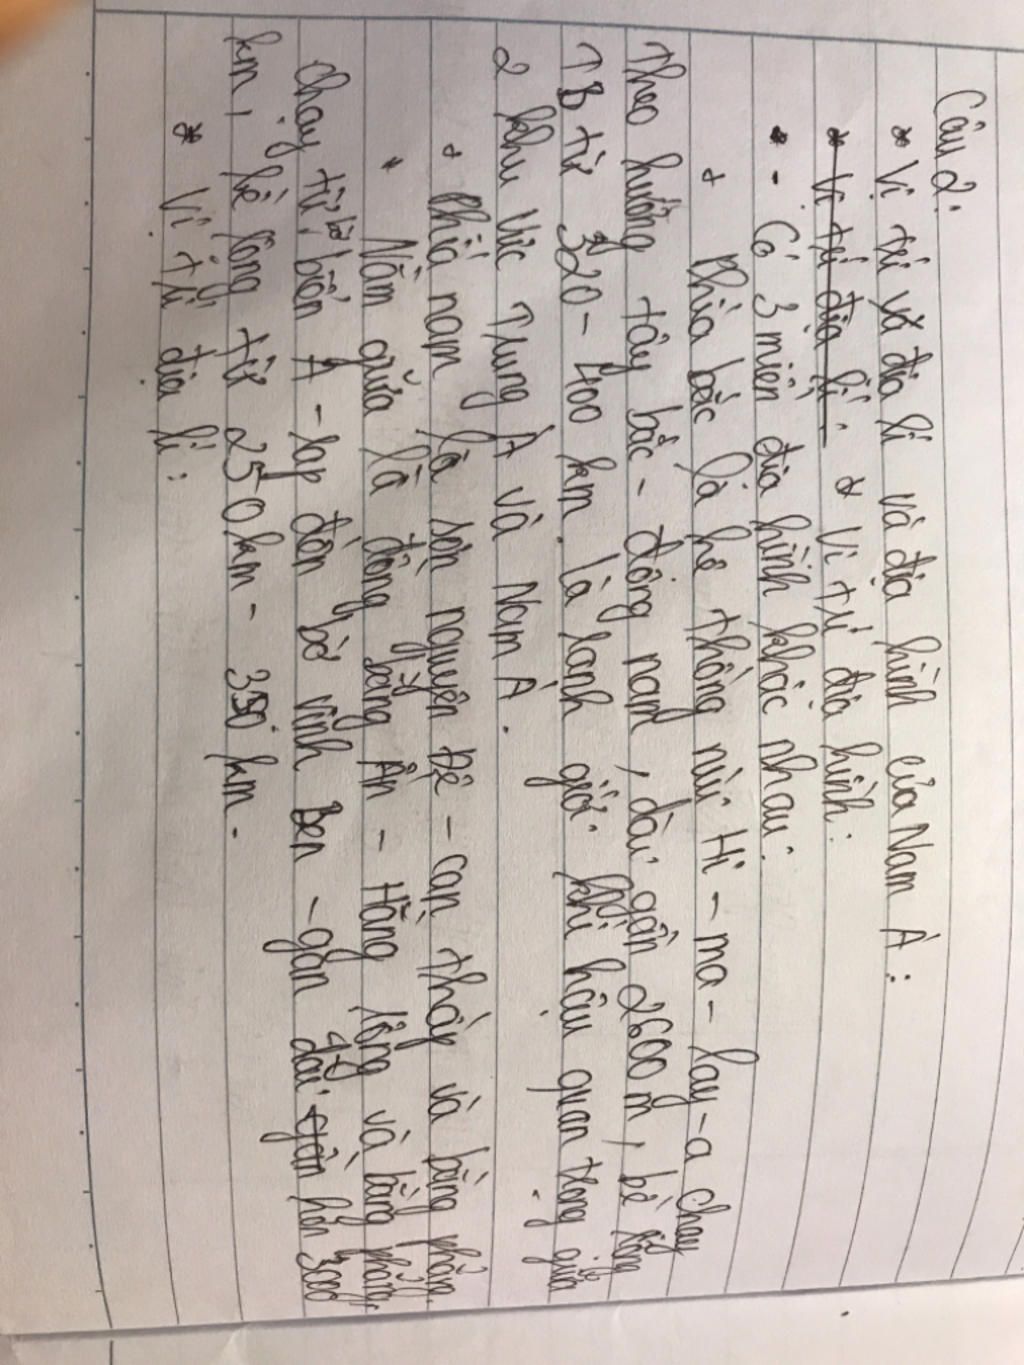 Câu 2:
* Vị trí và địa lí và địa hình của Nam Á:
* Vị trí địa lí. * Vị trí địa hình:
* - Có 3 miền địa hình khác nhau:
+ Phía bắc là hệ thống núi Hi-ma-lay-a chạy
theo hướng tây bắc - đông nam, dài gần 2600 m, bề rộng
TB từ 320 - 400 km. là ranh giới khí hậu quan trọng giữa
2 khu vực Trung Á và Nam Á.
+ Phía nam là sơn nguyên Đê - can thấp và bằng phẳng.
* Nằm giữa là đồng bằng Ấn - Hằng rộng và bằng phẳng,
chạy từ bờ biển A - rap đến bờ vịnh Ben - gan dài gần hơn 3000
km, bề rộng từ 250km - 350 km.
* Vị trí địa lí: